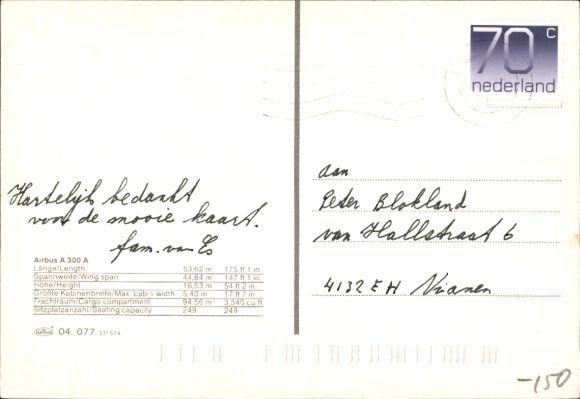 70 c
nederland
Hartelijk bedankt
voor de mooie kaart.
fam. van Es
aan
Peter Blokland
van Hallstraat 6
4132 EH Vianen
Airbus A 300 A
Länge/Length 53,62 m 175 ft 1 in
Spannweite/Wing span 44,84 m 147 ft 1 in
Höhe/Height 16,53 m 54 ft 2 in
Größte Kabinenbreite/Max. cabin width 5,40 m 17 ft 7 in
Frachtraum/Cargo compartment 94,56 m³ 3,340 cu ft
Sitzplatzanzahl/Seating capacity 249 249
04. 077
-150